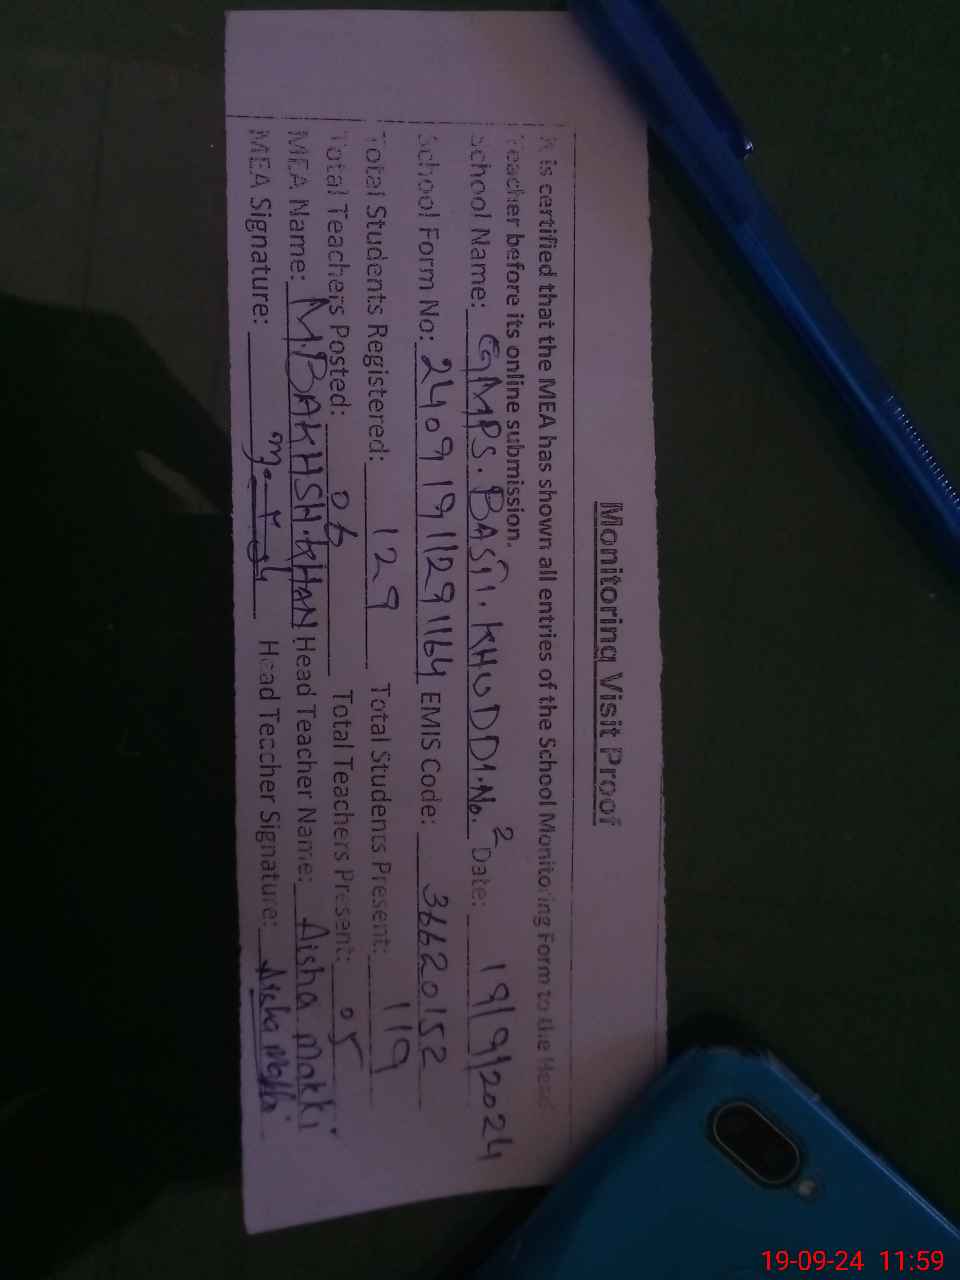 Monitoring Visit Proof
It is certified that the MEA has shown all entries of the School Monitoring Form to the Head
Teacher before its online submission.
School Name: GMPS. BASTI. KHUDDI. No. 2 Date: 19/9/2024
School Form No: 24091911291164 EMIS Code: 36620152
Total Students Registered: 129 Total Students Present: 119
Total Teachers Posted: 06 Total Teachers Present: 05
MEA Name: M.BAKHSH.KHAN Head Teacher Name: Aisha Makki
MEA Signature: Head Teacher Signature: Aisha Makki
19-09-24 11:59